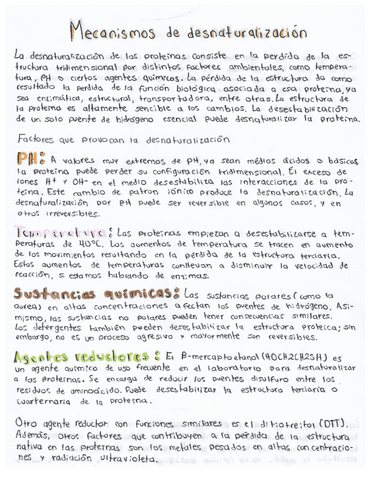 Mecanismos de desnaturalización
La desnaturalización de las proteínas consiste en la perdida de la es-
tructura tridimensional por distintos factores ambientales, como tempera-
tura, PH o ciertos agentes químicos. La pérdida de la estructura da como
resultado la perdida de la función biológica asociada a esa proteína, ya
sea enzimática, estructural, transportadora, entre otras. La estructura de
la proteína es altamente sensible a los cambios. La desestabilización
de un solo puente de hidrógeno esencial puede desnaturalizar la proteína.
Factores que provocan la desnaturalización
PH: A valores muy extremos de PH, ya sean medios ácidos o básicos
la proteína puede perder su configuración tridimensional. El exceso de
iones H+ y OH- en el medio desestabiliza las interacciones de la pro-
teína. Este cambio de patron iónico produce la desnaturalización. La
desnaturalización por PH puede ser reversible en algunos casos, y en
otros irreversibles.
Temperatura: Las proteínas empiezan a desestabilizarse a tem-
peraturas de 40°C. Los aumentos de temperatura se traen en aumento
de los movimientos resultando en la pérdida de la estructura terciaria.
Estos aumentos de temperaturas conllevan a disminuir la velocidad de
reacción, si estamos hablando de enzimas.
Sustancias químicas: Las sustancias polares (como la
úrea) en altas concentraciones afectan los puentes de hidrógeno. Asi-
mismo, las sustancias no polares pueden tener consecuencias similares.
Los detergentes también pueden desestabilizar la estructura proteica; sin
embargo, no es un proceso agresivo y mayormente son reversibles.
Agentes reductores: El β-mercaptoetanol (HOCH2CH2SH) es
un agente químico de uso frequente en el laboratorio para desnaturalizar
a las proteínas. Se encarga de reducir los puentes disulfuro entre los
residuos de aminoácido. Puede desestabilizar la estructura terciaria o
cuarternaria de la proteína.
Otro agente reductor con funciones similares es el ditiotreitol (DTT).
Además, otros factores que contribuyen a la pérdida de la estructura
nativa en las proteínas son los metales pesados en altas concentracio-
nes y radiación ultravioleta.